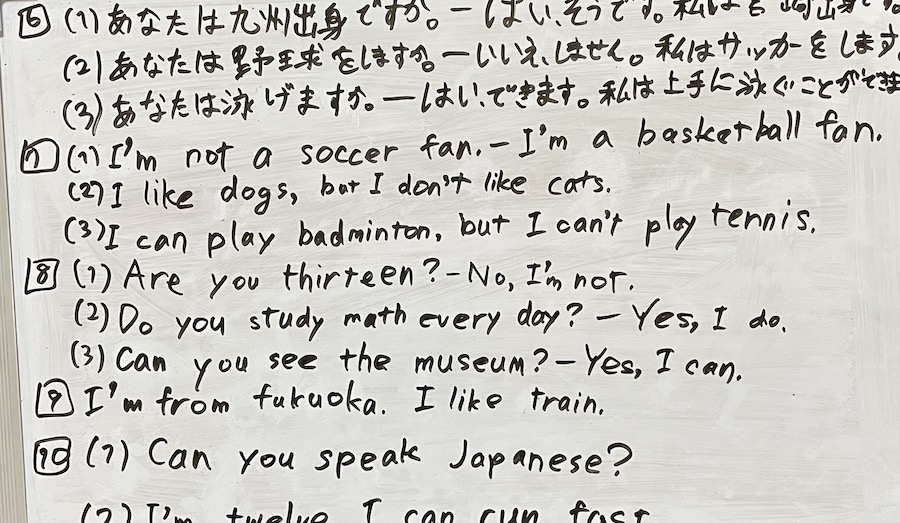 6 (1) あなたは九州出身ですか。ーはい、そうです。私は 出身で
(2) あなたは野球をしますか。ーいいえ、しません。私はサッカーをします
(3) あなたは泳げますか。ーはい、できます。私は上手に泳ぐことができま
7 (1) I'm not a soccer fan. - I'm a basketball fan.
(2) I like dogs, but I don't like cats.
(3) I can play badminton, but I can't play tennis.
8 (1) Are you thirteen? - No, I'm not.
(2) Do you study math every day? - Yes, I do.
(3) Can you see the museum? - Yes, I can.
9 I'm from fukuoka. I like train.
10 (1) Can you speak Japanese?
(2) I'm twelve I can run fast